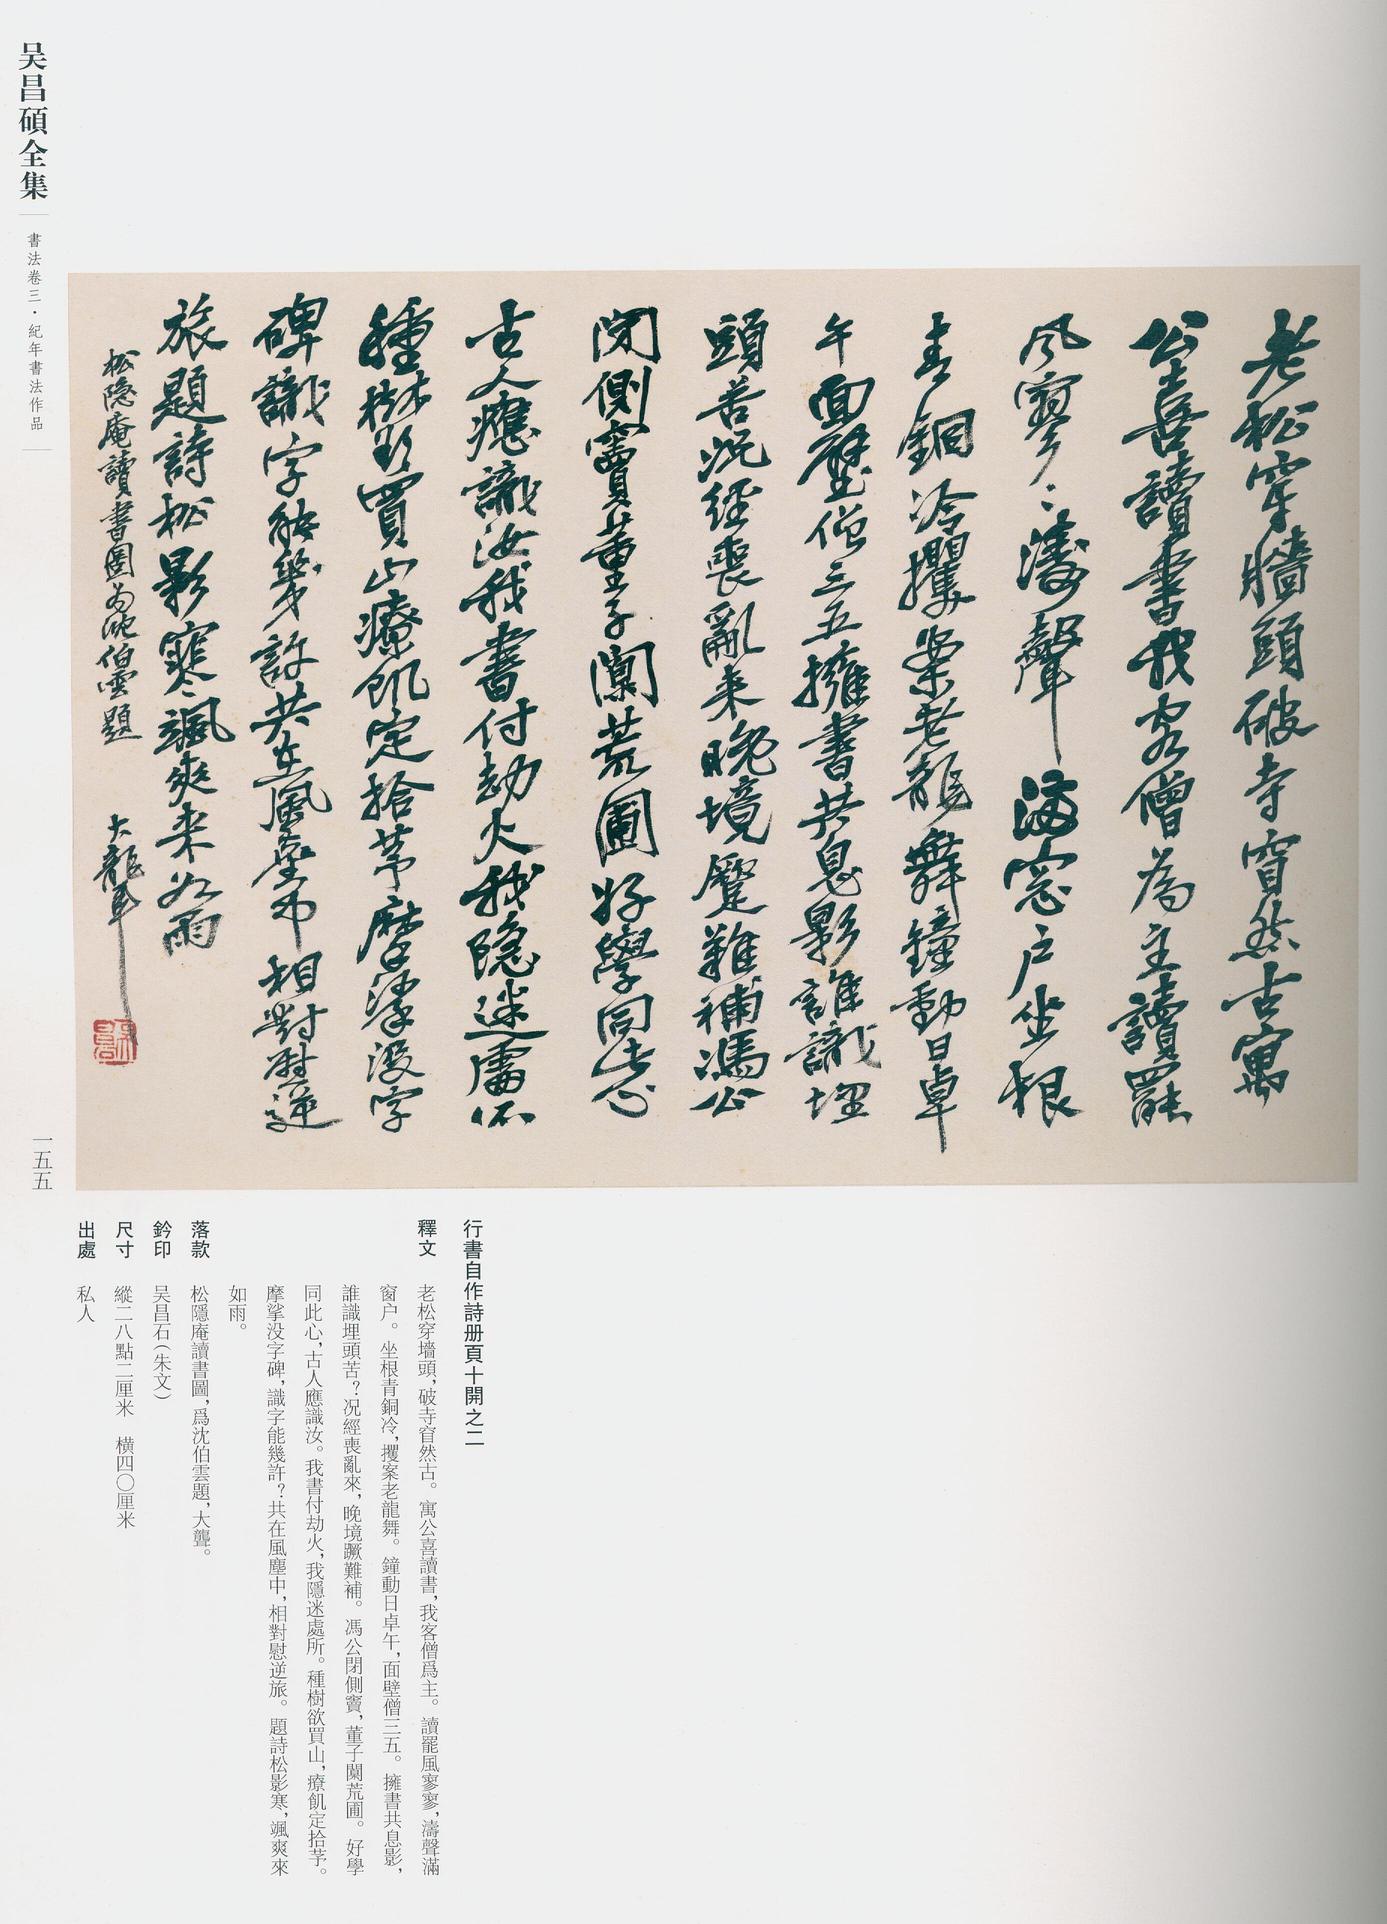 吴昌碩全集
書法卷三·紀年書法作品
一五五
老松穿牆頭破寺窅然古寓
公喜讀書我客僧為主讀罷
風寥〻濤聲滿窓户坐根
青銅冷攫案老龍舞鐘動日卓
午面壁僧三五擁書共息影誰識埋
頭苦况經喪亂来晚境蹷難補馮公
閉側竇董子闌荒圃好學同此心
古人應識汝我書付劫火我隐迷處所
種樹欲買山療飢定拾芧摩挲没字
碑識字能幾許共在風塵中相對慰逆
旅題詩松影寒颯爽来如雨
松隐庵讀書圖為沈伯雲題 大聾
行書自作詩册頁十開之二
釋文 老松穿墻頭，破寺窅然古。寓公喜讀書，我客僧爲主。讀罷風寥寥，濤聲滿
窗户。坐根青銅冷，攫案老龍舞。鐘動日卓午，面壁僧三五。擁書共息影，
誰識埋頭苦？况經喪亂來，晚境蹶難補。馮公閉側竇，董子闌荒圃。好學
同此心，古人應識汝。我書付劫火，我隱迷處所。種樹欲買山，療飢定拾芧。
摩挲没字碑，識字能幾許？共在風塵中，相對慰逆旅。題詩松影寒，颯爽來
如雨。
落款 松隱庵讀書圖，爲沈伯雲題，大聾。
鈐印 吴昌石（朱文）
尺寸 縱二八點二厘米 横四〇厘米
出處 私人